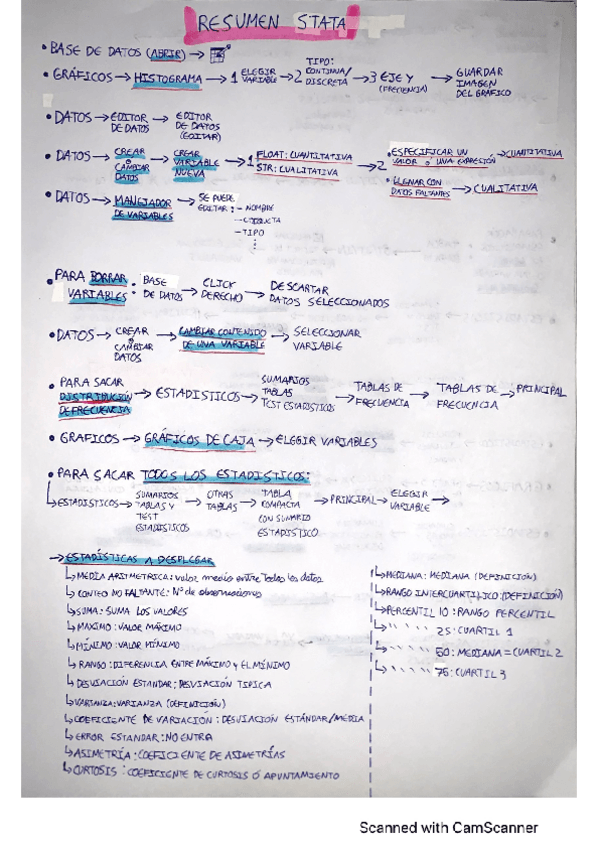 RESUMEN STATA
• BASE DE DATOS (ABRIR) →
• GRÁFICOS → HISTOGRAMA → 1 ELEGIR VARIABLE → 2 TIPO: CONTINUA/DISCRETA → 3 EJE Y (FRECUENCIA) → GUARDAR IMAGEN DEL GRAFICO
• DATOS → EDITOR DE DATOS → EDITOR DE DATOS (EDITAR)
• DATOS → CREAR O CAMBIAR DATOS → CREAR VARIABLE NUEVA → 1 FLOAT: CUANTITATIVA
STR: CUALITATIVA → 2 • ESPECIFICAR UN VALOR O UNA EXPRESIÓN → CUANTITATIVA
• LLENAR CON DATOS FALTANTES → CUALITATIVA
• DATOS → MANEJADOR DE VARIABLES → SE PUEDE EDITAR: - NOMBRE
- ETIQUETA
- TIPO
• PARA BORRAR VARIABLES: BASE DE DATOS → CLICK DERECHO → DESCARTAR DATOS SELECCIONADOS
• DATOS → CREAR O CAMBIAR DATOS → CAMBIAR CONTENIDO DE UNA VARIABLE → SELECCIONAR VARIABLE
• PARA SACAR DISTRIBUCIÓN DE FRECUENCIA → ESTADISTICOS → SUMARIOS TABLAS TEST ESTADISTICOS → TABLAS DE FRECUENCIA → TABLAS DE FRECUENCIA → PRINCIPAL
• GRAFICOS → GRÁFICOS DE CAJA → ELEGIR VARIABLES
• PARA SACAR TODOS LOS ESTADISTICOS:
↳ ESTADISTICOS → SUMARIOS TABLAS Y TEST ESTADISTICOS → OTRAS TABLAS → TABLA COMPACTA CON SUMARIO ESTADISTICO → PRINCIPAL → ELEGIR VARIABLE →
→ ESTADÍSTICAS A DESPLEGAR
↳ MEDIA ARITMETRICA: valor medio entre todos los datos
↳ CONTEO NO FALTANTE: Nº de observaciones
↳ SUMA: SUMA LOS VALORES
↳ MAXIMO: VALOR MÁXIMO
↳ MÍNIMO: VALOR MÍNIMO
↳ RANGO: DIFERENCIA ENTRE MÁXIMO Y EL MÍNIMO
↳ DESVIACIÓN ESTANDAR: DESVIACIÓN TIPICA
↳ VARIANZA: VARIANZA (DEFINICIÓN)
↳ COEFICIENTE DE VARIACIÓN: DESVIACIÓN ESTÁNDAR/MEDIA
↳ ERROR ESTANDAR: NO ENTRA
↳ ASIMETRÍA: COEFICIENTE DE ASIMETRÍAS
↳ CURTOSIS: COEFICIENTE DE CURTOSIS Ó APUNTAMIENTO
↳ MEDIANA: MEDIANA (DEFINICIÓN)
↳ RANGO INTERCUARTILICO: (DEFINICIÓN)
↳ PERCENTIL 10: RANGO PERCENTIL
↳ " 25: CUARTIL 1
↳ " 50: MEDIANA = CUARTIL 2
↳ " 75: CUARTIL 3
Scanned with CamScanner